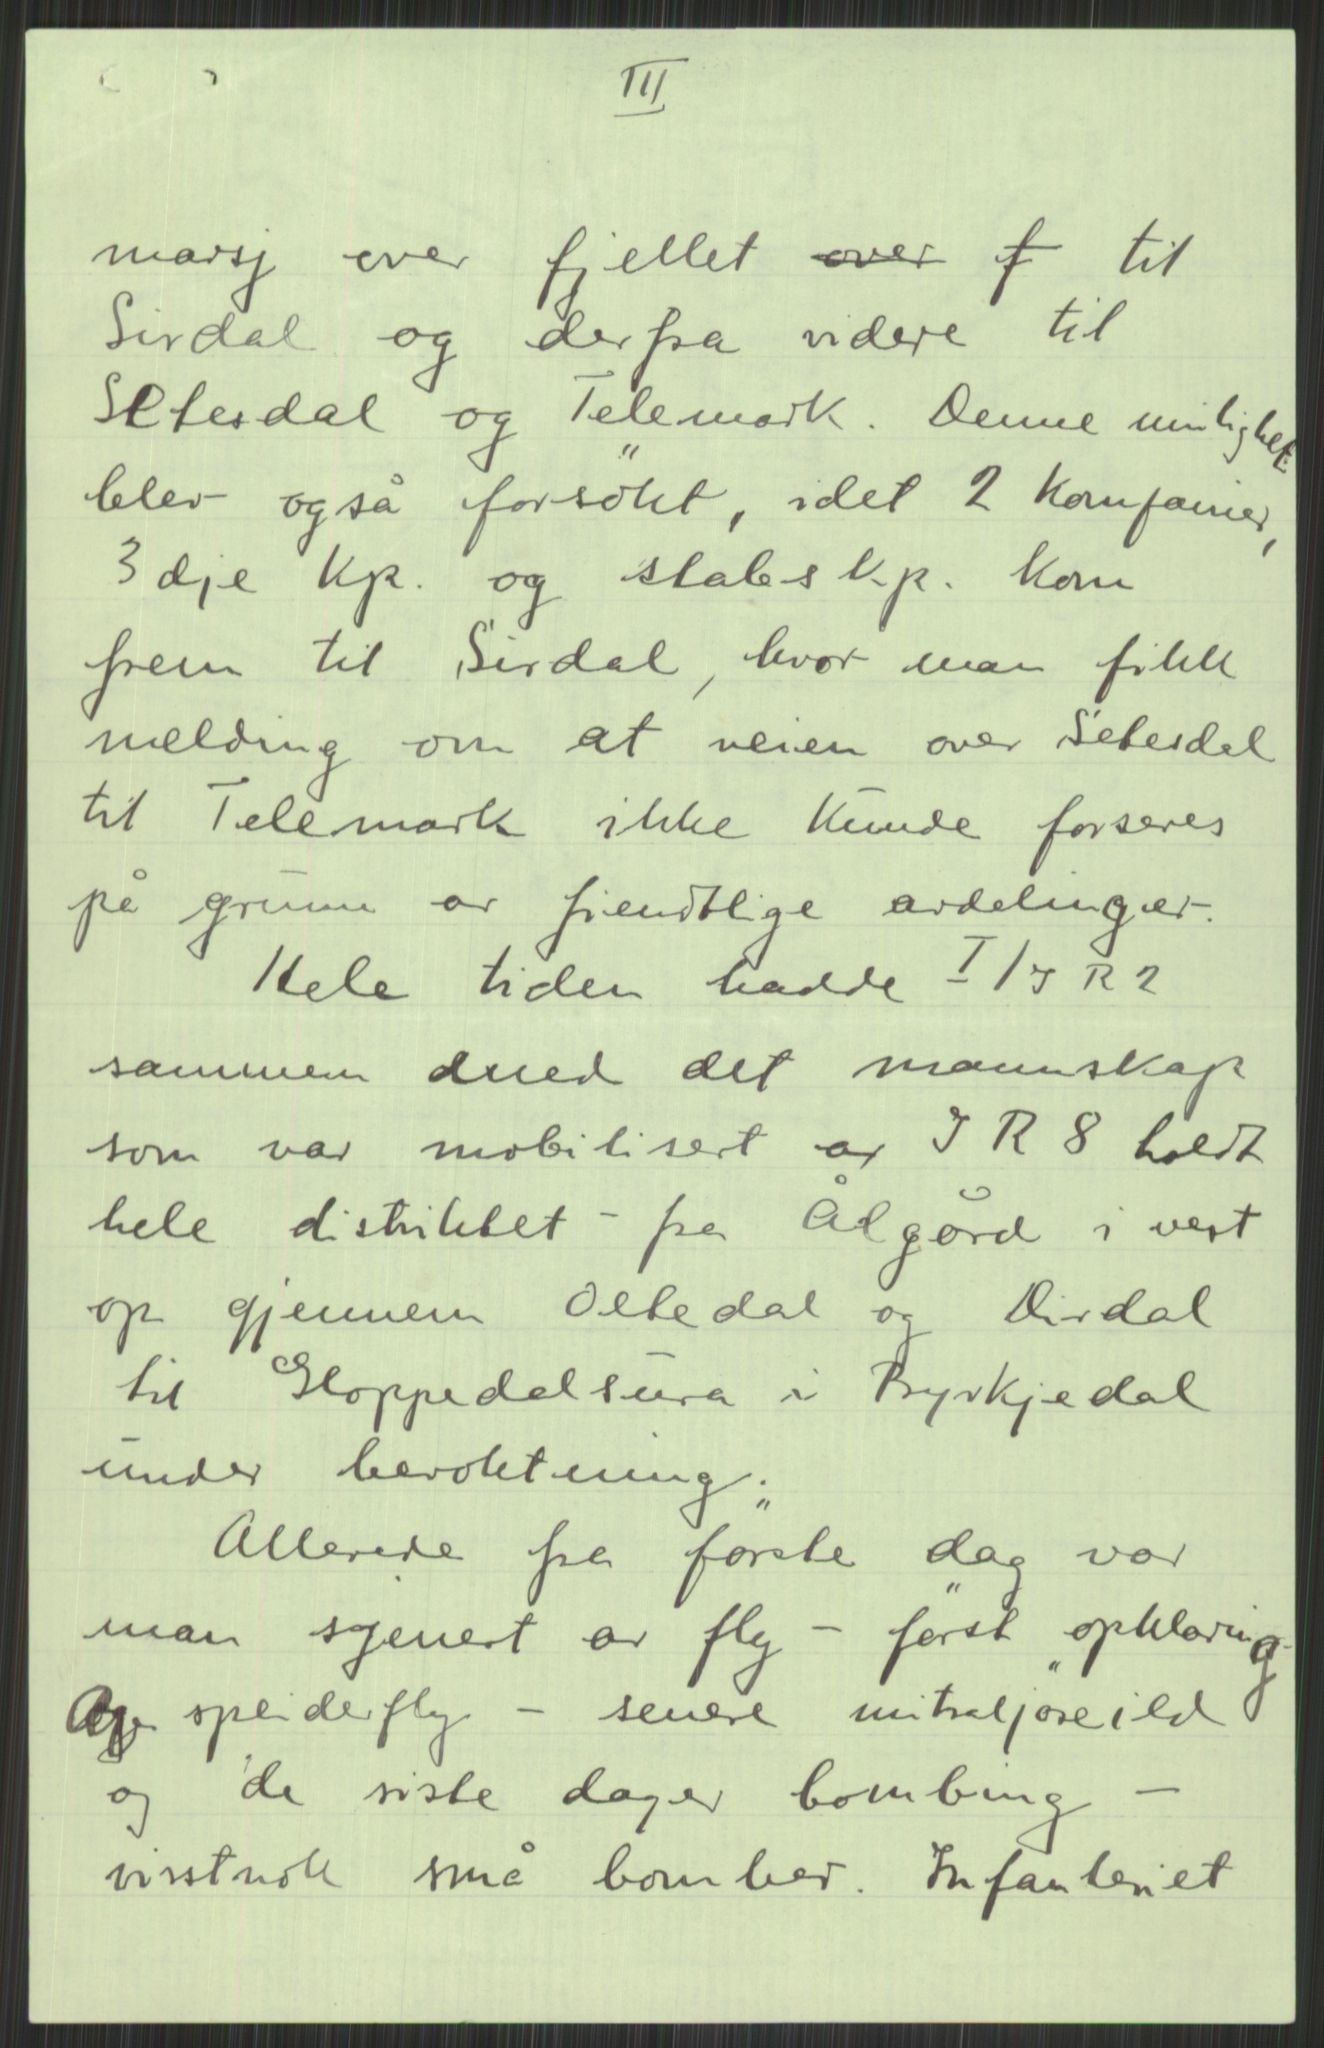 III
marsj over fjellet over f til
Sirdal og derfra videre til
Setesdal og Telemark. Denne mulighet
blev også forsökt, idet 2 kompanier,
3dje kp. og stabskp. kom
frem til Sirdal, hvor man fikk
melding om at veien over Setesdal
til Telemark ikke kunde forseres
på grunn av fiendtlige avdelinger.
Hele tiden hadde I/IR 2
sammen med det mannskap
som var mobilisert av IR 8 holdt
hele distriktet - fra Ålgård i vest
op gjennem Oltedal og Dirdal
til Gloppedalsura i Byrkjedal
under bevoktning.
Allerede fra förste dag var
man sjenert av fly - först opklaring
og speiderfly - senere mitraljöseild
og de siste dager bombing -
visstnok små bomber. Infanteriet